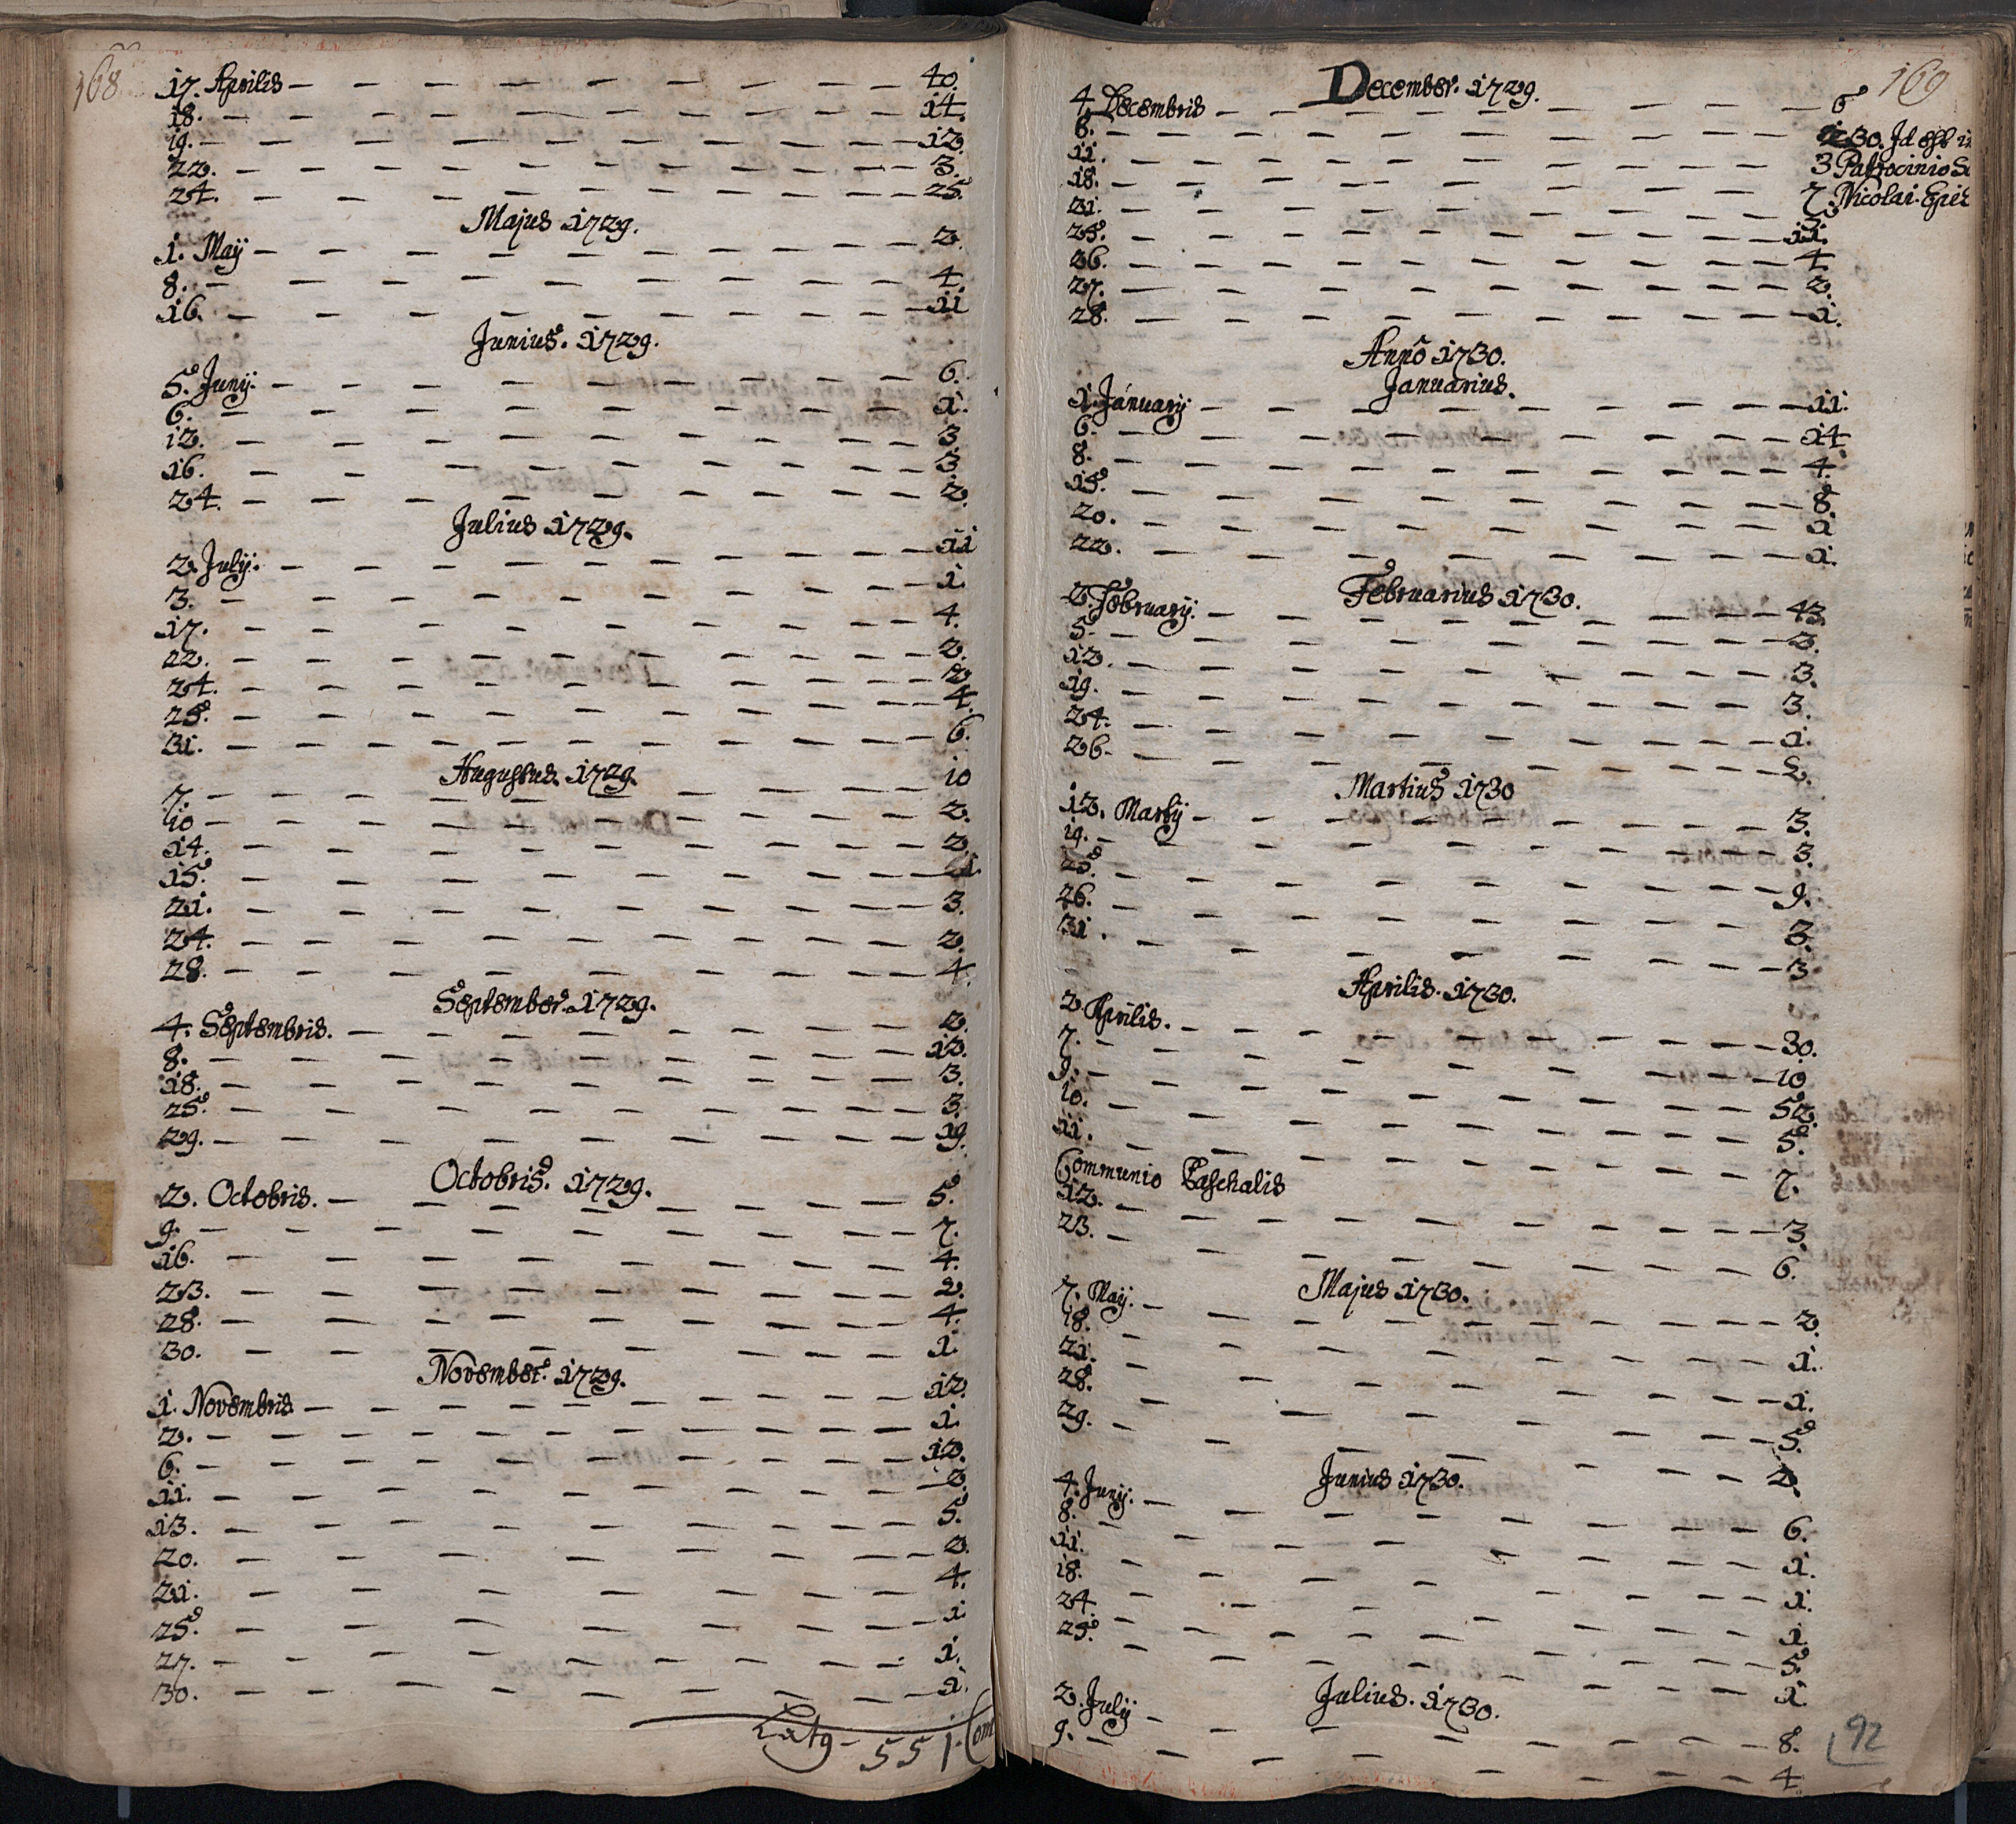 168
17. Aprilis — 40.
18. — 14.
19. — 12.
22. — 3.
24. — 25.
Majus 1729.
1. Maÿ — 2.
8. — 4.
16. — 11
Junius. 1729.
5. Junÿ. — 6.
6. — 1.
12. — 3.
16. — 3.
24. — 2.
Julius 1729.
2. Julÿ. — 11
3. — 1.
17. — 4.
22. — 2.
24. — 2.
25. — 4.
31. — 6.
Augustus. 1729.
7. — 10
10 — 2.
14. — 2.
15. —
21. — 3.
24. — 2.
28. — 4.
September. 1729.
4. Septembris. — 2.
8. — 12.
18. — 3.
25. — 3.
29. — 19.
Octobris. 1729.
2. Octobris. — 5.
9. — 7.
16. — 4.
23. — 2.
28. — 4.
30. — 1.
November. 1729.
1. Novembris — 12.
2. — 1.
6. — 12.
11. — 2.
13. — 5.
20. — 2.
21. — 4.
25. — 1.
27. — 1.
30. — 1.
551.
169
December. 1729.
4. Decembris — 6
6. — 130. Id est
11. — 3 Patrocinio
18. — 7. Nicolai.
21. — 3.
25. — 11.
26. — 4.
27. — 2.
28. — 1.
Anno 1730.
Januarius.
1. Januarÿ — 11.
6. — 14
8. — 4.
15. — 8.
20. — 1
22. — 1.
Februarius 1730.
2. Februarÿ. — 43.
5. — 2.
12. — 3.
19. — 3.
24. — 1.
26. — 2.
Martius 1730
12. Martÿ — 3.
19. — 3.
25. — 9.
26. — 3.
31. — 3.
Aprilis. 1730.
2. Aprilis. — 30.
7. — 10
9. — 52.
10. — 5.
11. — 7.
Communio Paschalis
12. — 3.
23. — 6.
Majus 1730.
7. Maÿ. — 2.
18. — 1.
21. — 1.
28. — 5.
29. — 2.
Junius 1730.
4. Junÿ. — 6.
8. — 1.
11. — 1.
18. — 1.
24. — 5.
25. — 1.
Julius. 1730.
2. Julÿ — 8.
9. — 4.
92